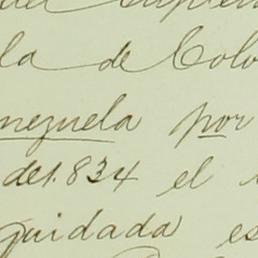 la de Colo
nezuela por
de 1.834 el
quidada es